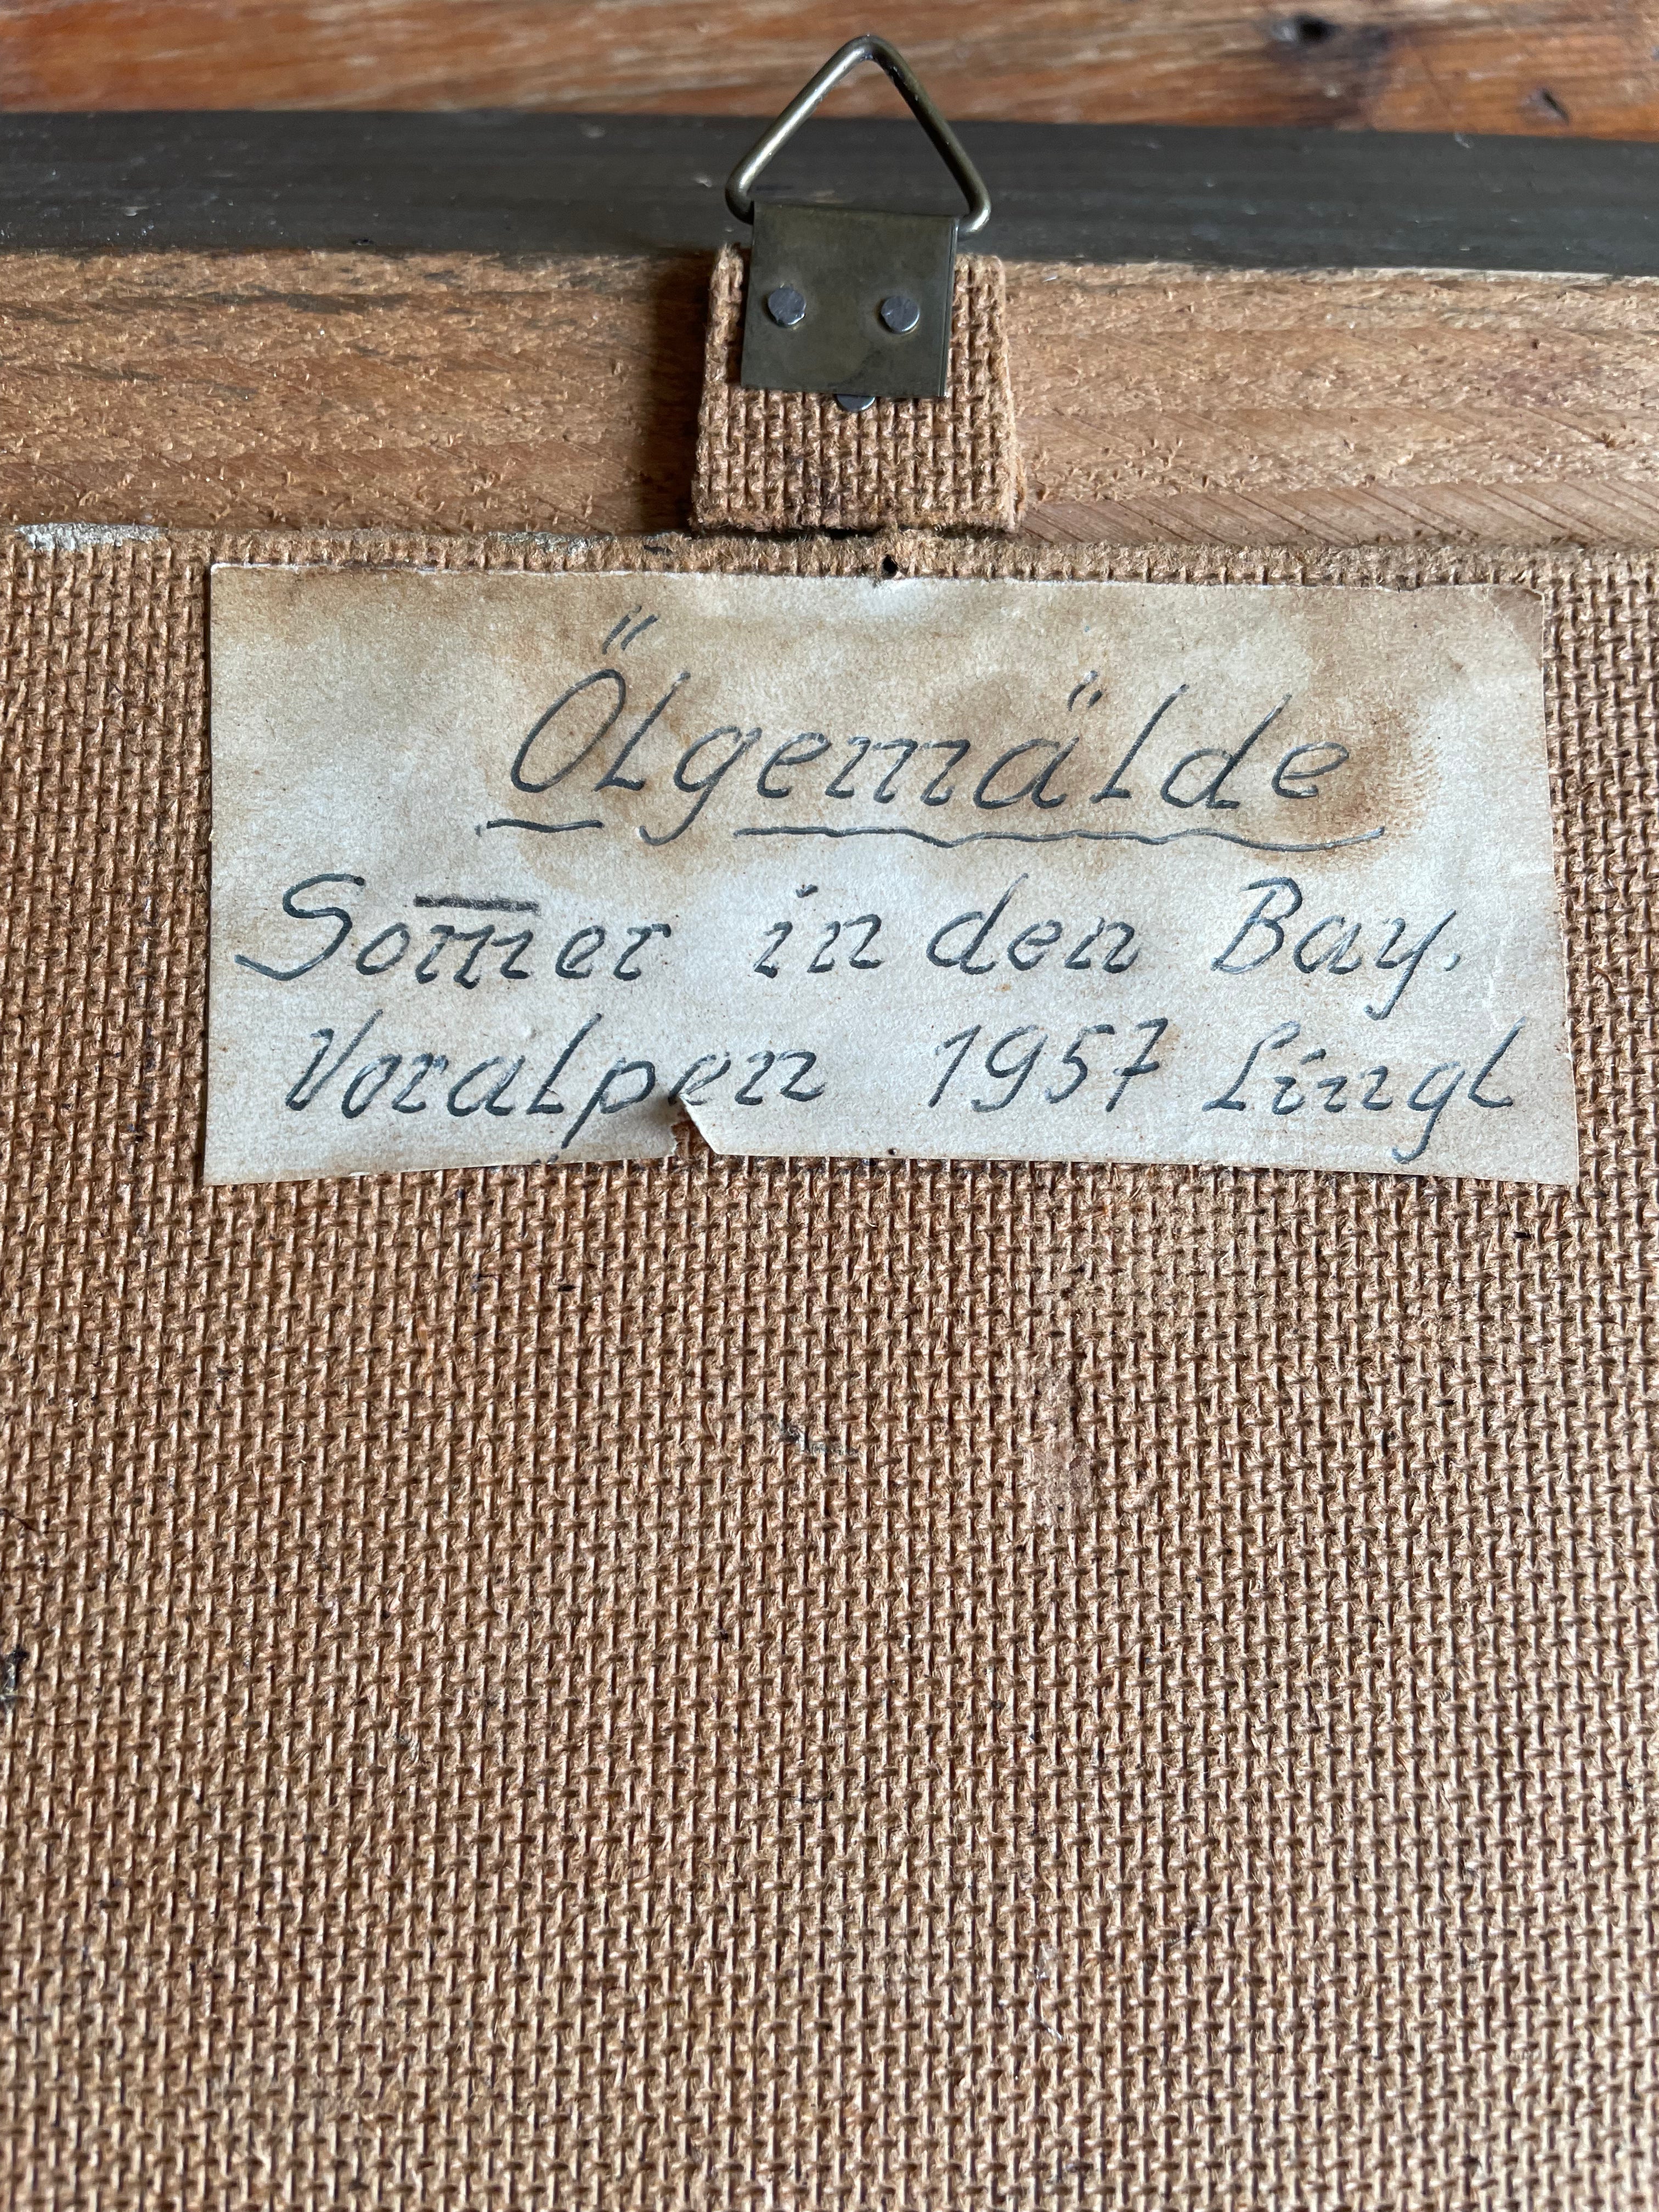 Ölgemälde
Som̅er in den Bay.
Voralpen 1957 Lingl